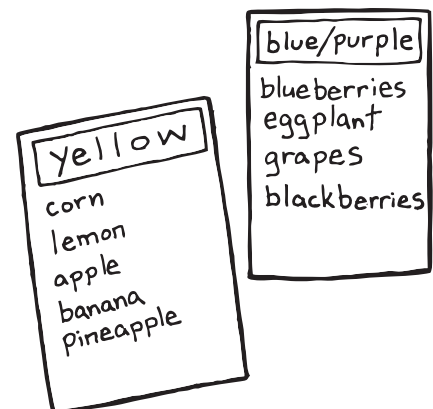 yellow
corn
lemon
apple
banana
pineapple
blue/purple
blueberries
eggplant
grapes
blackberries